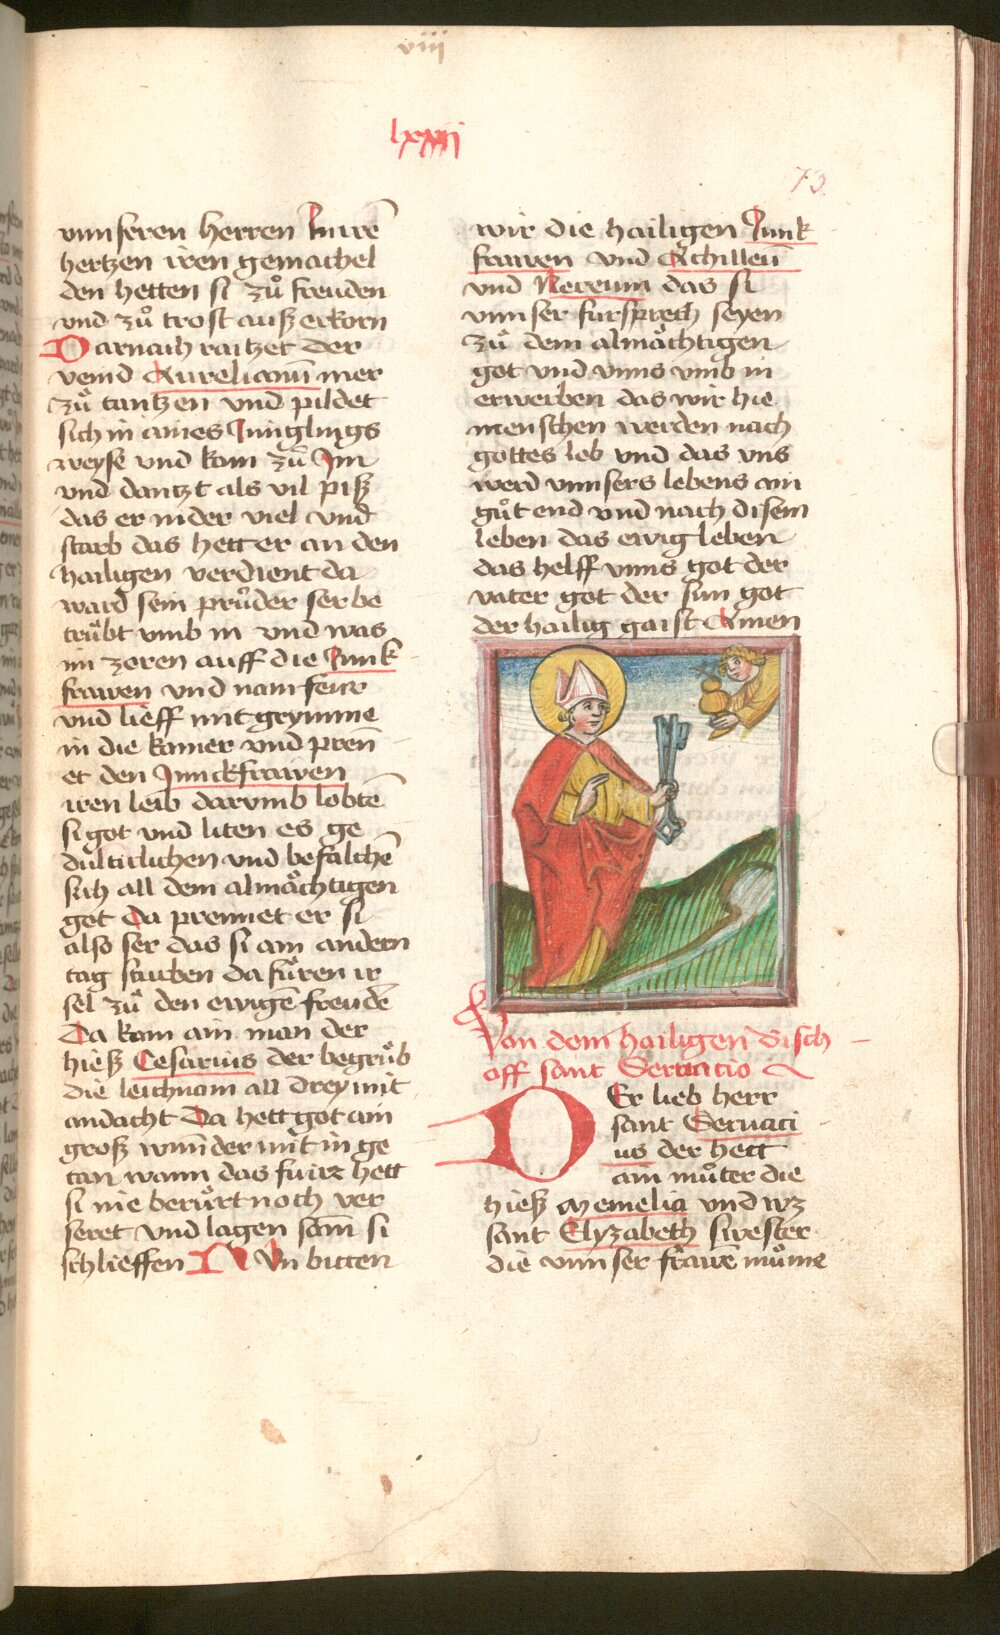 viii
lxxiij
73.
vnnseren herren Inn irē
hertzen iren gemachel
den hetten si zů freuden
und zů trost auß erkorn
Darnach raitzet der
veind Aurelianū mer
zů tantzen vnd pildet
sich in aines Jünglings
weyse vnd kam zů Im
vnd dantzt als vil piß
das er nider viel vnd
starb das hett er an den
hailigen verdient da
ward sein průder ser be
trübt vmb in vnd was
im zoren auff die Junk
frawen vnd nam feirr
vnd lieff mit grymme
in die kamer vnd pren̄
et den Junckfrawen
iren leib darvmb lobtē
si got vnd liten es ge
dultiklichen vnd befalchē
sich all dem almächtigen
got da prennet er si
also ser das si am andern
tag sturben da fůren ir
sel zů den ewigē freudē
Da kam ain man der
hieß Cesarius der begrůb
die leichnam all drey mit
andacht Da hett got ain
groß wunder mit in ge
tan wann das fuirr hett
si nie berürt noch ver
seret vnd lagen sam si
schlieffen Nun bitten
wir die hailigen Junk
frawen vnd Achilleū
vnd Nereum das si
vnnser fürsprech seyen
zů dem almächtigen
got vnd vnns vmb in
erwerben das wir hie
menschen werden nach
gottes lob vnd das vns
werd vnnsers lebens ain
gůt end vnd nach disem
leben das ewig leben
das helff vnns got der
vater got der sun got
der hailig gaist Amen
Von dem hailigen Bisch
off sant Servacio
Der lieb herr
sant Servaci
us der hett
ain můter die
hieß Memelia vnd wz
sant Elyzabeth swester
die vnnser frawē můme